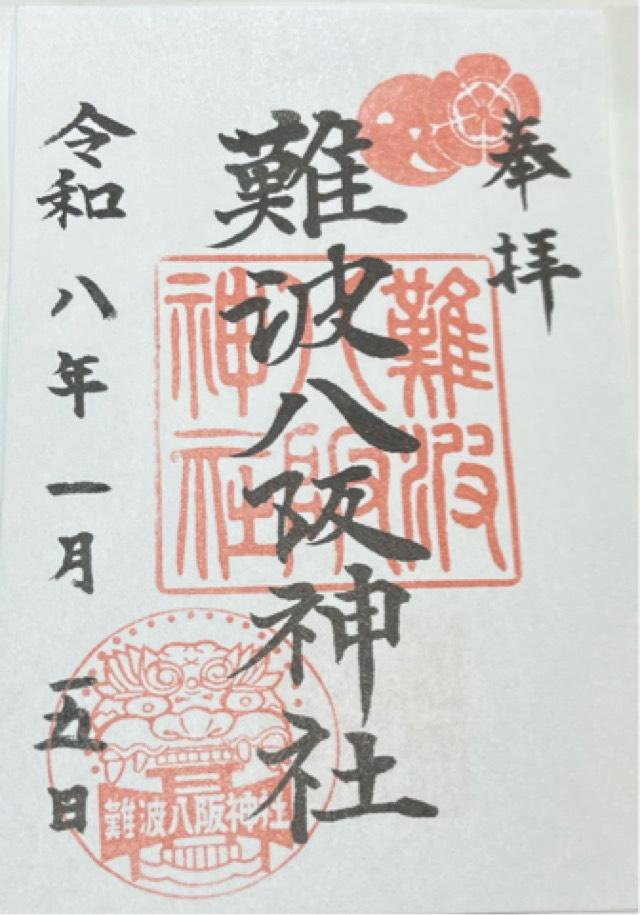 奉拝
難波八阪神社
難波
八阪
神社
令和八年一月五日
難波八阪神社